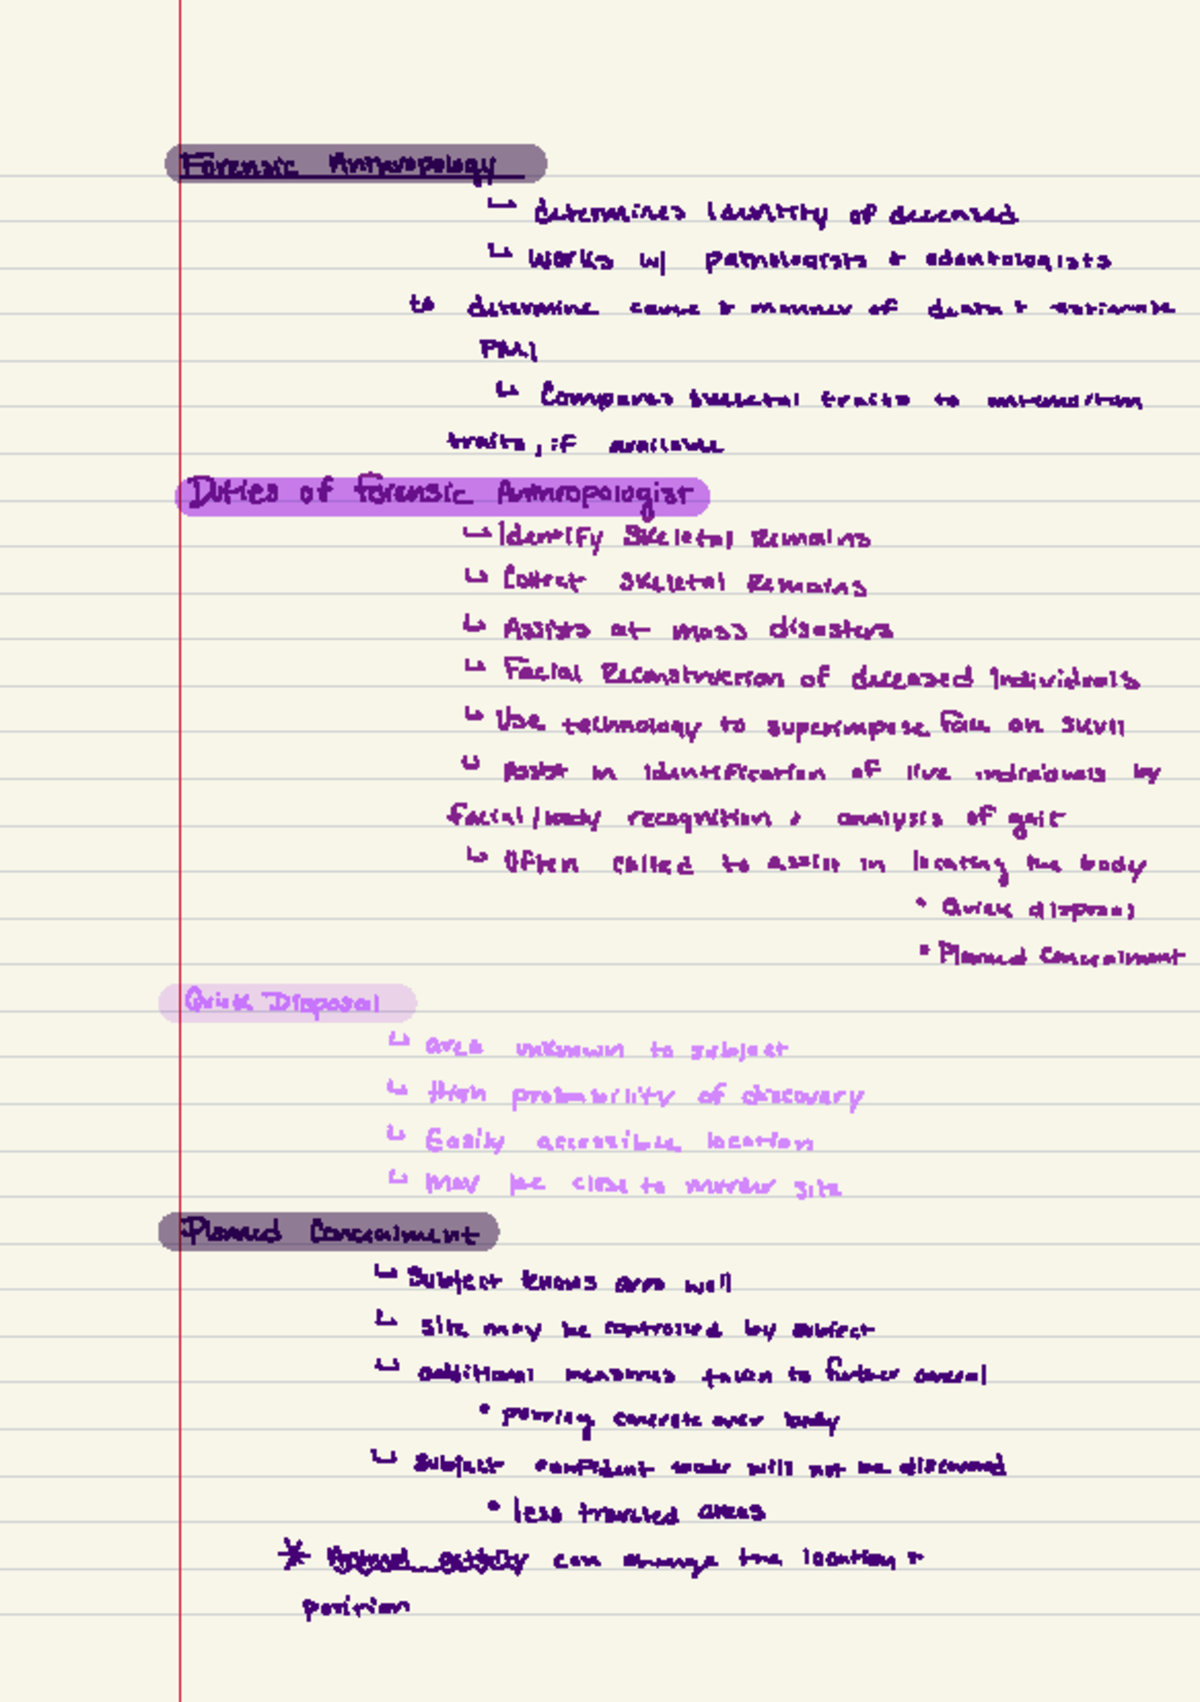 Forensic Anthropology
↳ determines Identity of deceased
↳ Works w/ pathologists + odontologists
to determine cause + manner of death + estimate
PMI
↳ Compares skeletal traits to antemortem
traits, if available
Duties of Forensic Anthropologist
↳ Identify Skeletal Remains
↳ Collect Skeletal Remains
↳ Assists at mass disasters
↳ Facial Reconstruction of deceased Individuals
↳ Use technology to superimpose face on skull
↳ Assist in identification of live individuals by
facial/body recognition + analysis of gait
↳ Often called to assist in locating the body
• Quick disposal
• Planned Concealment
Quick Disposal
↳ area unknown to subject
↳ High probability of discovery
↳ Easily accessible location
↳ May be close to murder site
Planned Concealment
↳ Subject knows area well
↳ Site may be controlled by subject
↳ additional measures taken to further conceal
• pouring concrete over body
↳ Subject confident will not be discovered
• less traveled areas
* Animal activity can change the location +
position